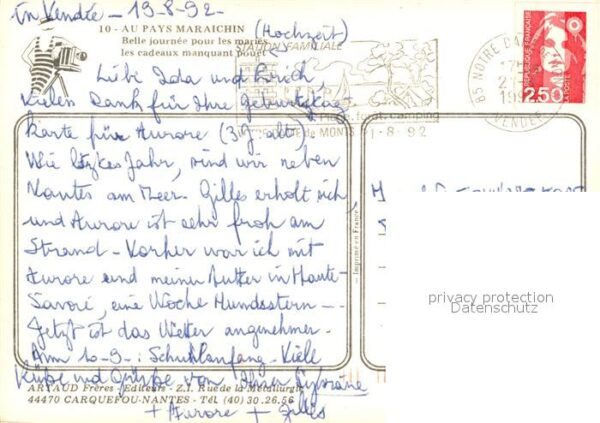 en Vendée - 19-8-92-
10 - AU PAYS MARAICHIN (Hochzeit)
Belle journée pour les mariés
les cadeaux manquant pour
STATION FAMILIALE
Plage, forêt, camping
de MONTS 1-8-92
85 NOTRE DA
VENDEE
REPUBLIQUE FRANÇAISE
2,50
LA POSTE
Liebe Ida und
Vielen Dank für Ihre Geburtstags
karte für Aurore (3 J. alt),
Wie letztes Jahr, sind wir neben
Nantes am Meer. Gilles erholt sich,
und Aurore ist sehr froh am
Strand - Vorher war ich mit
Aurore und meiner Mutter in Haute-
Savoie, eine Woche
Jetzt ist das Wetter angenehmer.
Am 10-9-: Schulanfang - Viele
Küße und Grüße von Ihrer
+ Aurore + Gilles
Imprimé en France
ARTAUD Frères - Editeurs - Z.I. Rue de la Métallurgie
44470 CARQUEFOU-NANTES - Tél (40) 30.26.56
privacy protection
Datenschutz